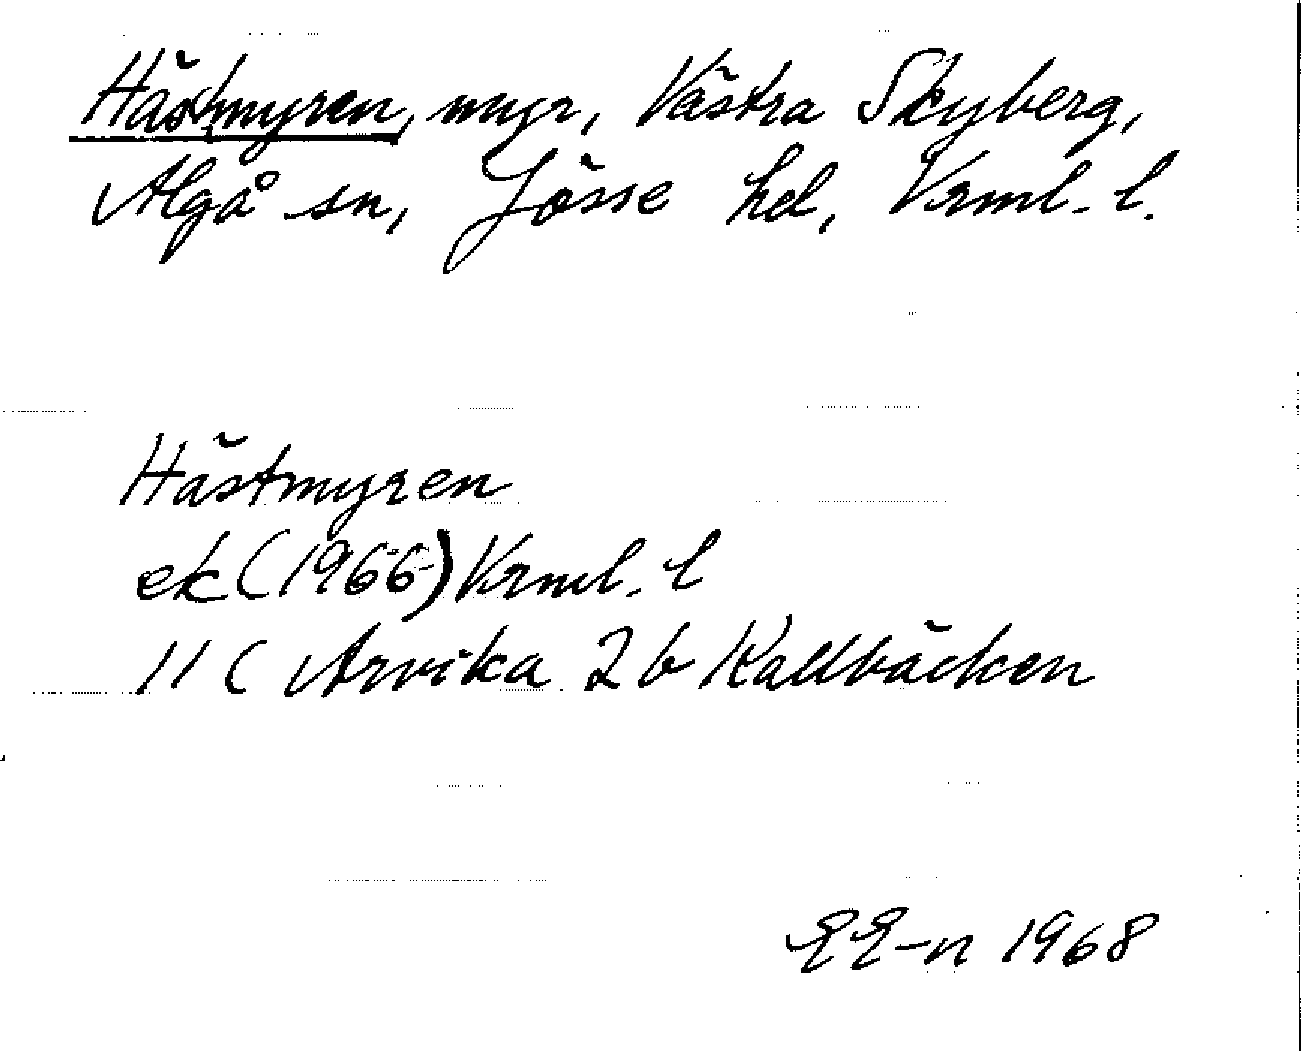 Hästmyren, myr, Västra Skyberg,
Algå sn, Jösse hd, Vrml. l.
Hästmyren
ek (1966) Vrml. l
11 C Arvika 2 b Kallbäcken
EE-n 1968